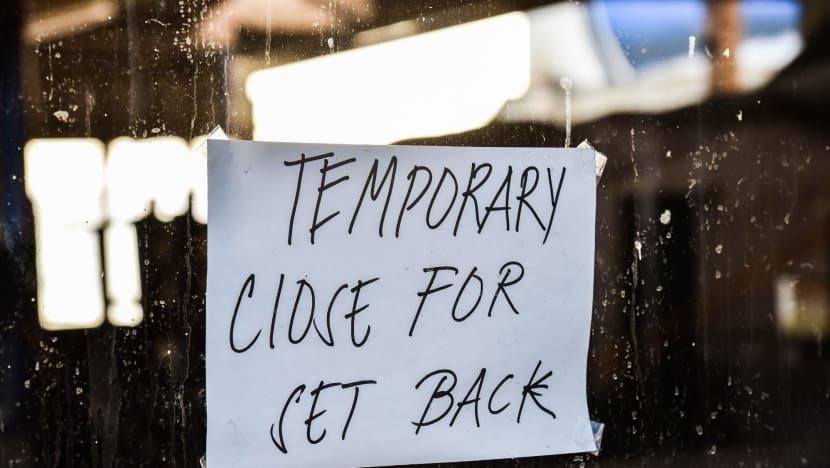 TEMPORARY
CLOSE FOR
SET BACK